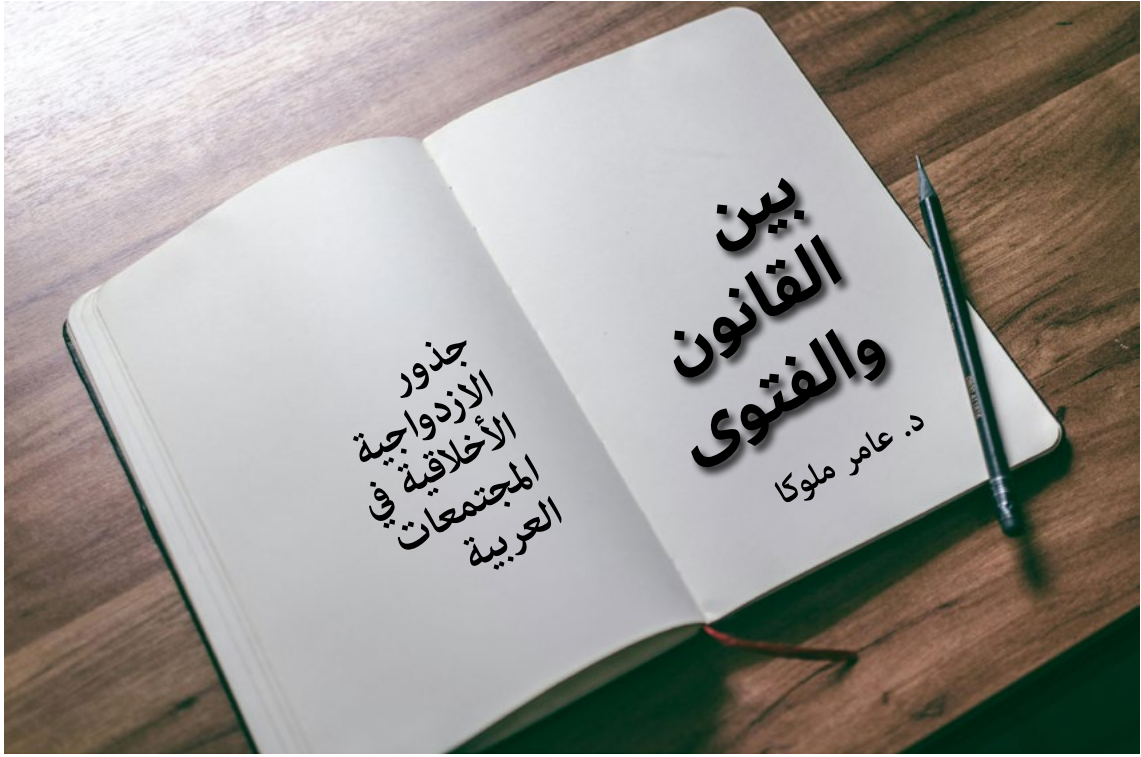 بين
القانون
والفتوى
د. عامر ملوكا
جذور
الازدواجية
الأخلاقية في
المجتمعات
العربية